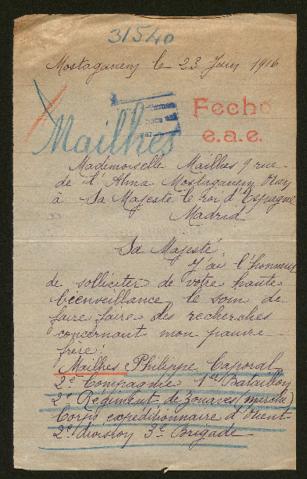 31540
Mostaganem le 23 Juin 1916
Fecho
e.a.e.
Mailhes
Mademoiselle Mailhes 9 rue
de l'Alma Mostaganem Oran
à Sa Majesté le roi d'Espagne
Madrid
Sa Majesté
J'ai l'honneur
de solliciter de votre haute
bienveillance le soin de
faire faire des recherches
concernant mon pauvre
frère:
Mailhes Philippe Caporal
2e Compagnie 1er Bataillon
2e Régiment de zouaves (mixte)
Corps expéditionnaire d'Orient
2e division 3e Brigade